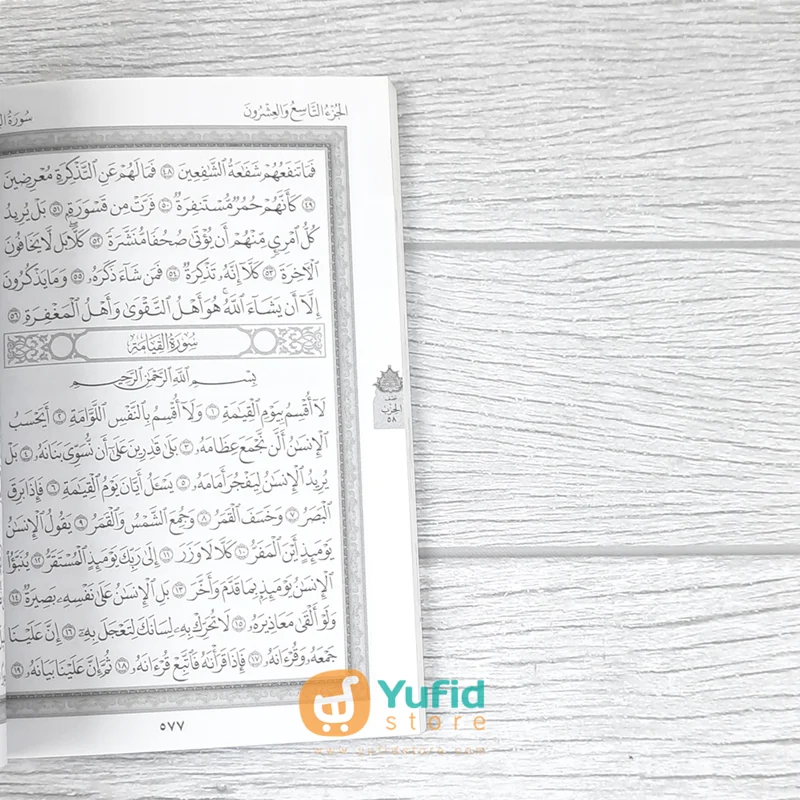 الجُزْءُ التَّاسِعُ وَالعِشْرُونَ
سُورَةُ
فَمَا تَنفَعُهُمْ شَفَٰعَةُ ٱلشَّٰفِعِينَ ٤٨ فَمَا لَهُمْ عَنِ ٱلتَّذْكِرَةِ مُعْرِضِينَ
٤٩ كَأَنَّهُمْ حُمُرٌ مُّسْتَنفِرَةٌ ٥٠ فَرَّتْ مِن قَسْوَرَةٍۭ ٥١ بَلْ يُرِيدُ
كُلُّ ٱمْرِئٍ مِّنْهُمْ أَن يُؤْتَىٰ صُحُفًا مُّنَشَّرَةً ٥٢ كَلَّاۖ بَل لَّا يَخَافُونَ
ٱلْءَاخِرَةَ ٥٣ كَلَّآ إِنَّهُۥ تَذْكِرَةٌ ٥٤ فَمَن شَآءَ ذَكَرَهُۥ ٥٥ وَمَا يَذْكُرُونَ
إِلَّآ أَن يَشَآءَ ٱللَّهُۚ هُوَ أَهْلُ ٱلتَّقْوَىٰ وَأَهْلُ ٱلْمَغْفِرَةِ ٥٦
سُورَةُ القِيَامَةِ
بِسْمِ ٱللَّهِ ٱلرَّحْمَٰنِ ٱلرَّحِيمِ
لَآ أُقْسِمُ بِيَوْمِ ٱلْقِيَٰمَةِ ١ وَلَآ أُقْسِمُ بِٱلنَّفْسِ ٱللَّوَّامَةِ ٢ أَيَحْسَبُ
ٱلْإِنسَٰنُ أَلَّن نَّجْمَعَ عِظَامَهُۥ ٣ بَلَىٰ قَٰدِرِينَ عَلَىٰٓ أَن نُّسَوِّيَ بَنَانَهُۥ ٤ بَلْ
يُرِيدُ ٱلْإِنسَٰنُ لِيَفْجُرَ أَمَامَهُۥ ٥ يَسْـَٔلُ أَيَّانَ يَوْمُ ٱلْقِيَٰمَةِ ٦ فَإِذَا بَرِقَ
ٱلْبَصَرُ ٧ وَخَسَفَ ٱلْقَمَرُ ٨ وَجُمِعَ ٱلشَّمْسُ وَٱلْقَمَرُ ٩ يَقُولُ ٱلْإِنسَٰنُ
يَوْمَئِذٍ أَيْنَ ٱلْمَفَرُّ ١٠ كَلَّا لَا وَزَرَ ١١ إِلَىٰ رَبِّكَ يَوْمَئِذٍ ٱلْمُسْتَقَرُّ ١٢ يُنَبَّؤُا۟
ٱلْإِنسَٰنُ يَوْمَئِذٍۭ بِمَا قَدَّمَ وَأَخَّرَ ١٣ بَلِ ٱلْإِنسَٰنُ عَلَىٰ نَفْسِهِۦ بَصِيرَةٌ ١٤
وَلَوْ أَلْقَىٰ مَعَاذِيرَهُۥ ١٥ لَا تُحَرِّكْ بِهِۦ لِسَانَكَ لِتَعْجَلَ بِهِۦٓ ١٦ إِنَّ عَلَيْنَا
جَمْعَهُۥ وَقُرْءَانَهُۥ ١٧ فَإِذَا قَرَأْنَٰهُ فَٱتَّبِعْ قُرْءَانَهُۥ ١٨ ثُمَّ إِنَّ عَلَيْنَا بَيَانَهُۥ ١٩
٥٧٧
نصف
الحزب
٥٨
Yufid
store
www.yufidstore.com